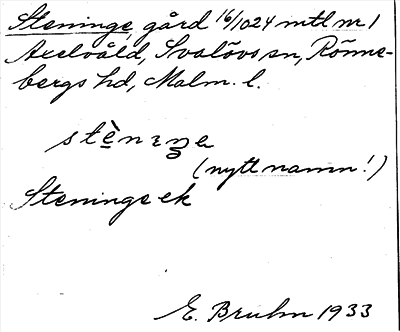 Steninge, gård 16/1024 mtl nr 1
Axelvåld, Svalövs sn, Rönne-
bergs hd, Malm. l.
(nytt namn!)
Steninge ek
E. Bruhn 1933